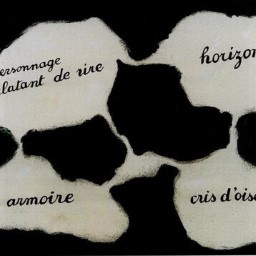 ersonnage
latant de rire
horizon
armoire
cris d'oise